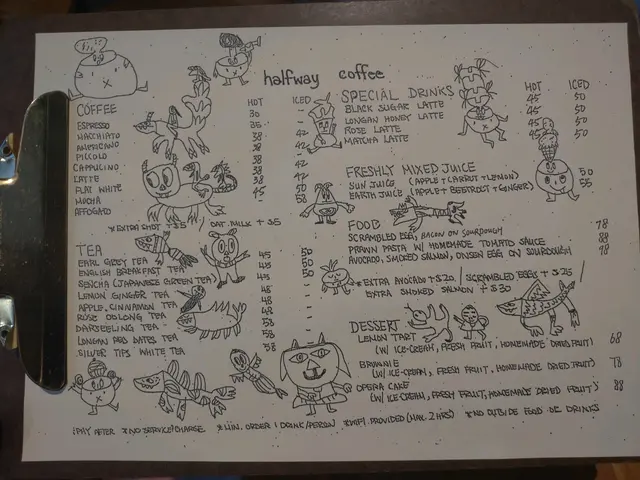 halfway coffee
COFFEE HOT ICED
ESPRESSO 30 -
MACCHIATO 35 -
AMERICANO 38 42
PICCOLO 38 -
CAPPUCINO 38 42
LATTE 38 42
FLAT WHITE 38
MOCHA 45 50
AFFOGATO - 58
*EXTRA SHOT +$5 / OAT MILK +$5
TEA
EARL GREY TEA 45 50
ENGLISH BREAKFAST TEA 45 50
SENCHA (JAPANESE GREEN TEA) 45 50
LEMON GINGER TEA 48 -
APPLE CINNAMON TEA 48 -
ROSE OOLONG TEA 48 -
DARJEELING TEA 58 -
LONGAN RED DATES TEA 58 -
SILVER TIPS WHITE TEA 58 -
SPECIAL DRINKS HOT ICED
BLACK SUGAR LATTE 45 50
LONGAN HONEY LATTE 45 50
ROSE LATTE 45 50
MATCHA LATTE 45 50
FRESHLY MIXED JUICE
SUN JUICE (APPLE+CARROT+LEMON) 50
EARTH JUICE (APPLE+BEETROOT+GINGER) 55
FOOD
SCRAMBLED EGG, BACON ON SOURDOUGH 78
PRAWN PASTA W/ HOMEMADE TOMATO SAUCE 88
AVOCADO, SMOKED SALMON, ONSEN EGG ON SOURDOUGH 98
*EXTRA AVOCADO +$20 / SCRAMBLED EGGS +$25 /
EXTRA SMOKED SALMON +$30
DESSERT
LEMON TART 68
(W/ ICE-CREAM, FRESH FRUIT, HOMEMADE DRIED FRUIT)
BROWNIE 78
(W/ ICE-CREAM, FRESH FRUIT, HOMEMADE DRIED FRUIT)
OPERA CAKE 88
(W/ ICE-CREAM, FRESH FRUIT, HOMEMADE DRIED FRUIT)
*PAY AFTER *NO SERVICE CHARGE *MIN. ORDER 1 DRINK/PERSON *WIFI PROVIDED (MAX. 2 HRS) *NO OUTSIDE FOOD OR DRINKS